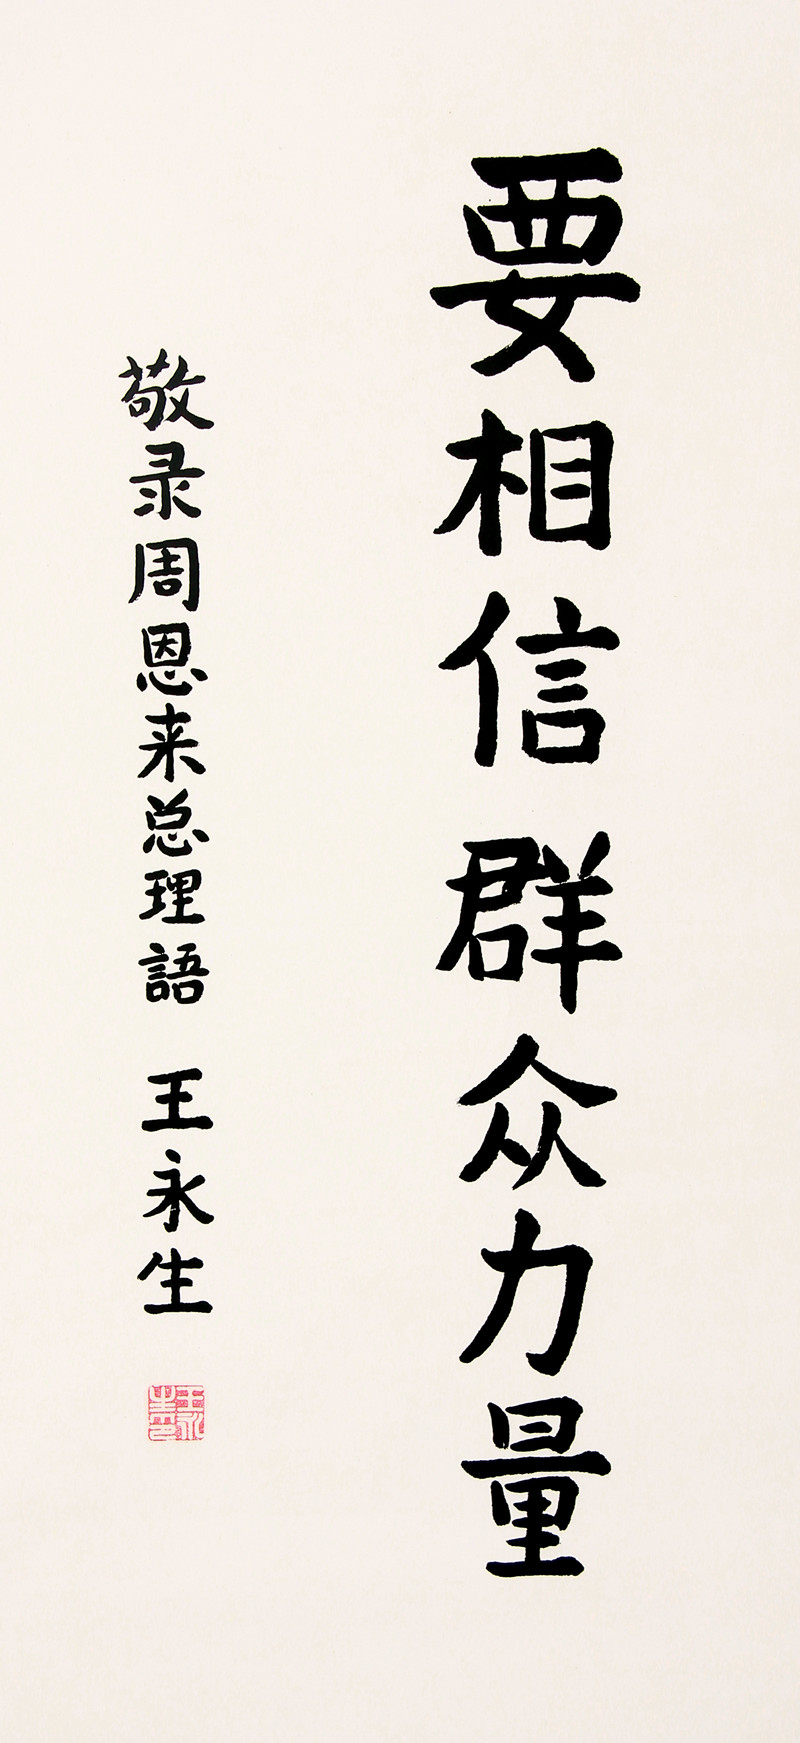 要相信群众力量
敬录周恩来总理語 王永生
王永生印